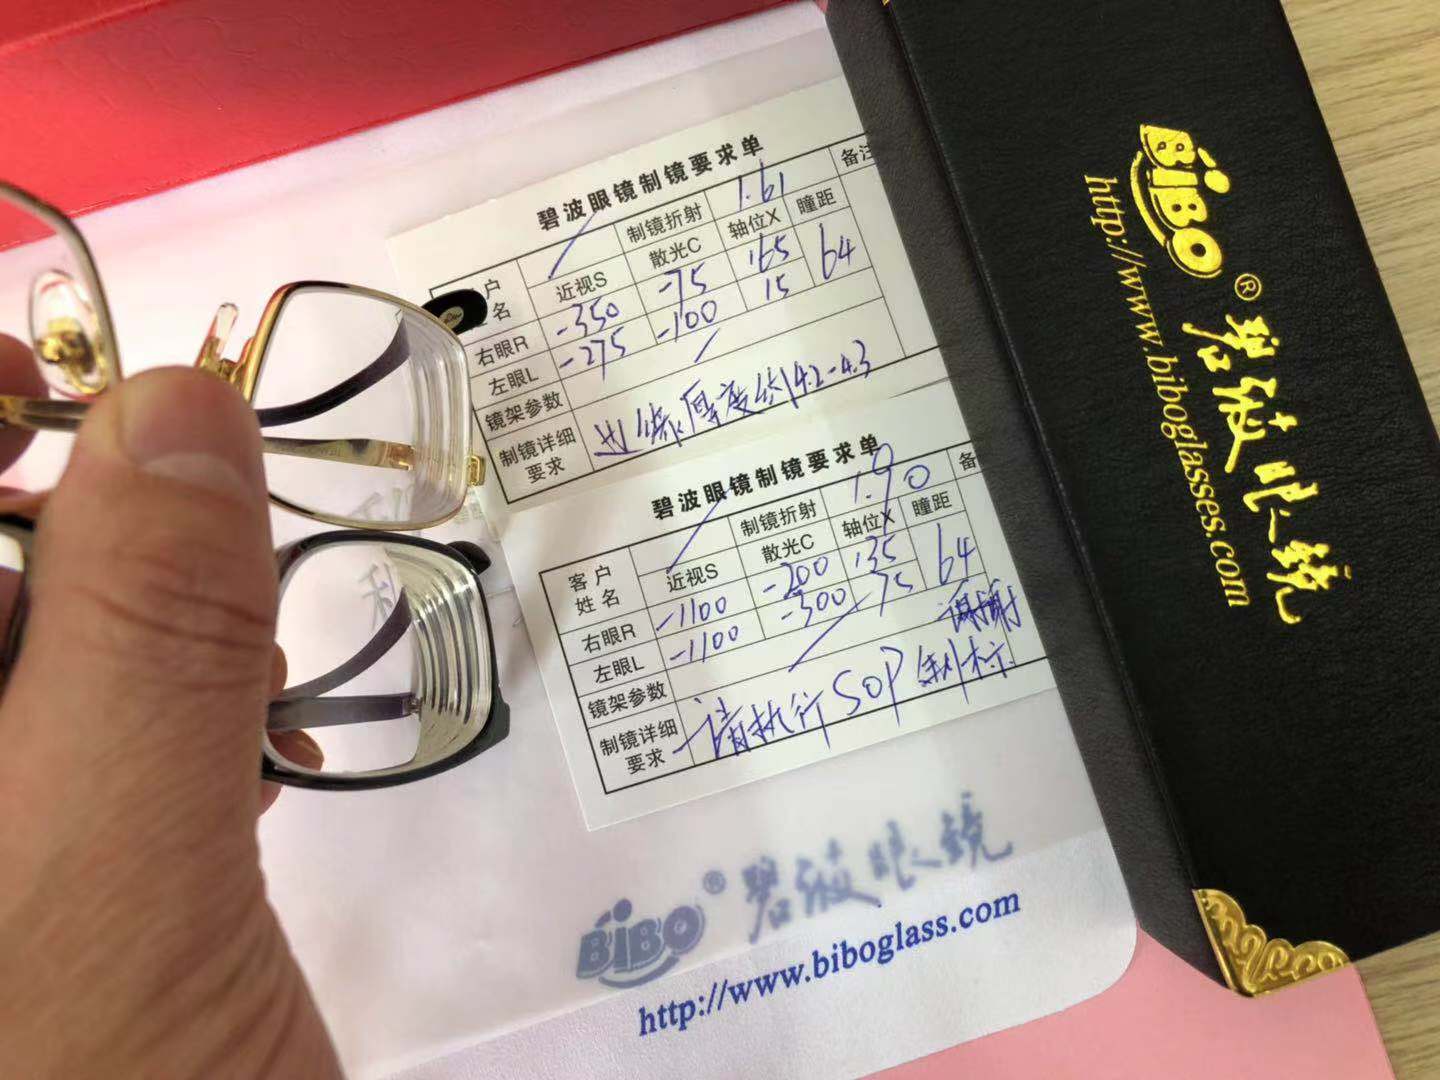 碧波眼镜制镜要求单
户
名
制镜折射
1.61
备注
近视S
散光C
轴位X
瞳距
右眼R
-350
-75
165
64
左眼L
-275
-100
15
镜架参数
制镜详细
要求
边缘厚度给14.2-4.3
碧波眼镜制镜要求单
客户
姓名
制镜折射
1.90
备
近视S
散光C
轴位X
瞳距
右眼R
-1100
-200
135
64
左眼L
-1100
-300
75
镜架参数
制镜详细
要求
请执行SOP制标
谢谢
BiBO® 碧波眼镜
http://www.biboglass.com
BiBO® 碧波眼镜
http://www.biboglasses.com